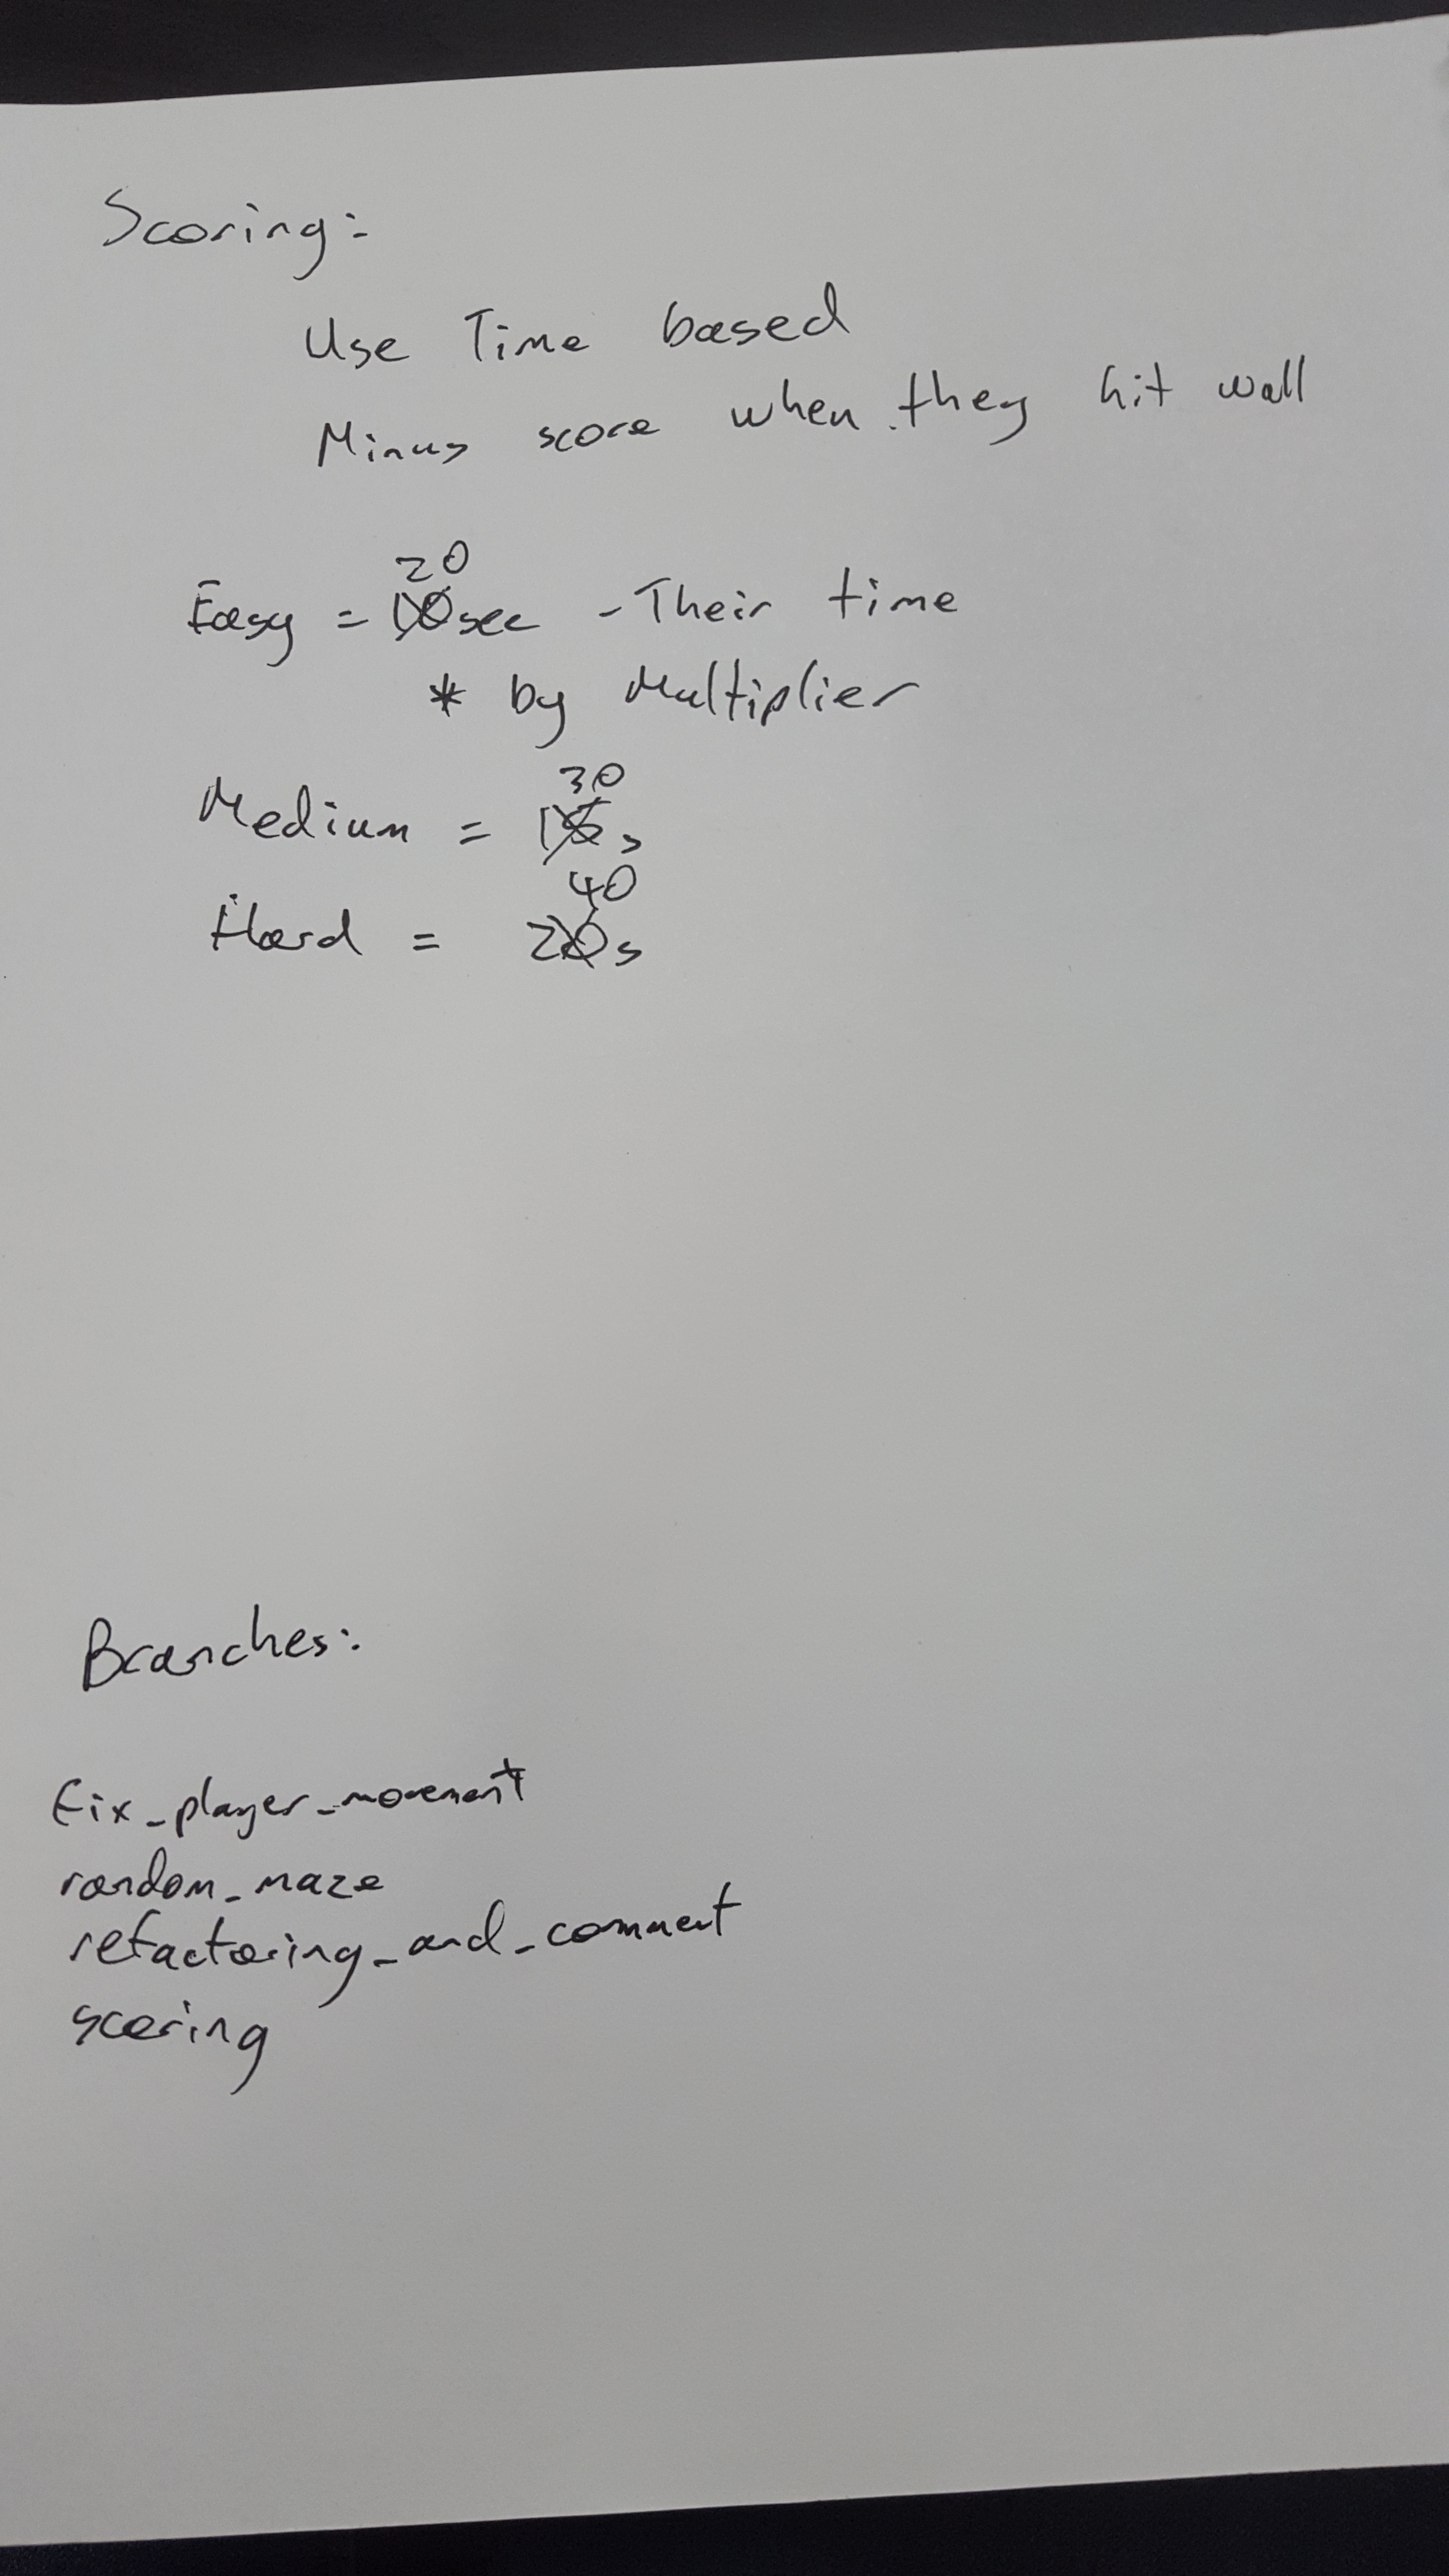 Scoring:
Use Time based
Minus score when they hit wall
20
Easy = 10sec - Their time
* by Multiplier
30
Medium = 15s
40
Hard = 20s
Branches:
fix_player_movement
random_maze
refactoring_and_comment
scoring